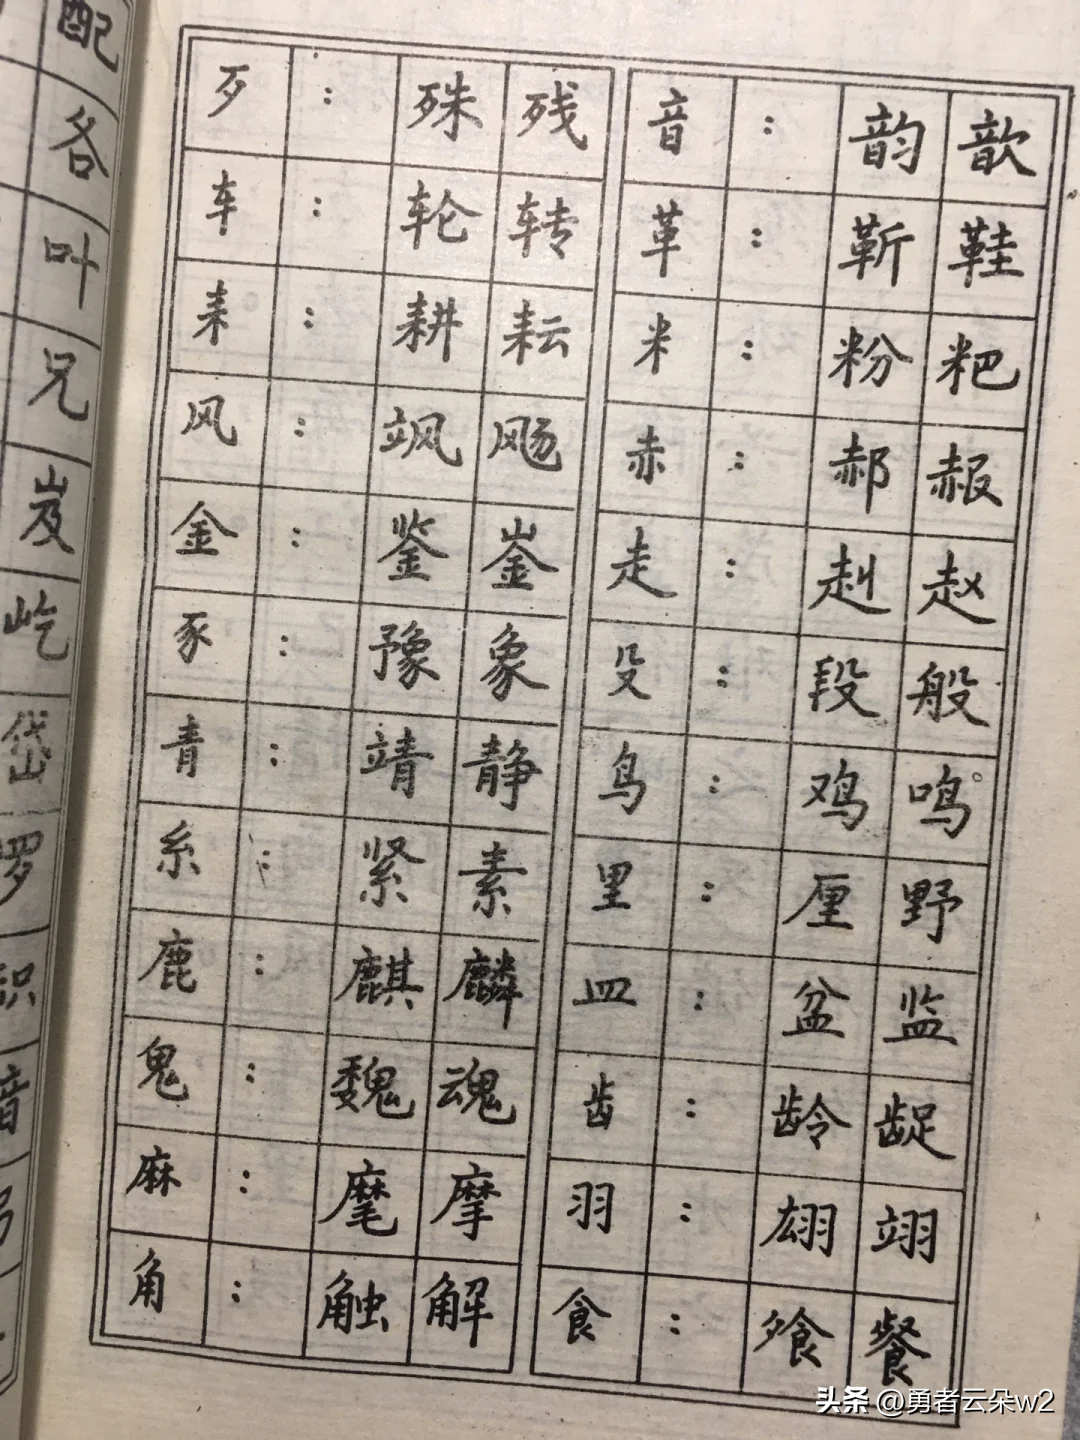 配
各
叶
兄
岌
屹
岱
罗
识
音
歹：殊残
车：轮转
耒：耕耘
风：飒飏
金：鉴崟
豕：豫象
青：靖静
糸：紧素
鹿：麒麟
鬼：魏魂
麻：麾摩
角：触解
音：韵歆
革：靳鞋
米：粉粑
赤：郝赧
走：赳赵
殳：段般
鸟：鸡鸣
里：厘野
皿：盆监
齿：龄龊
羽：翃翊
食：飧餐
头条 @勇者云朵w2